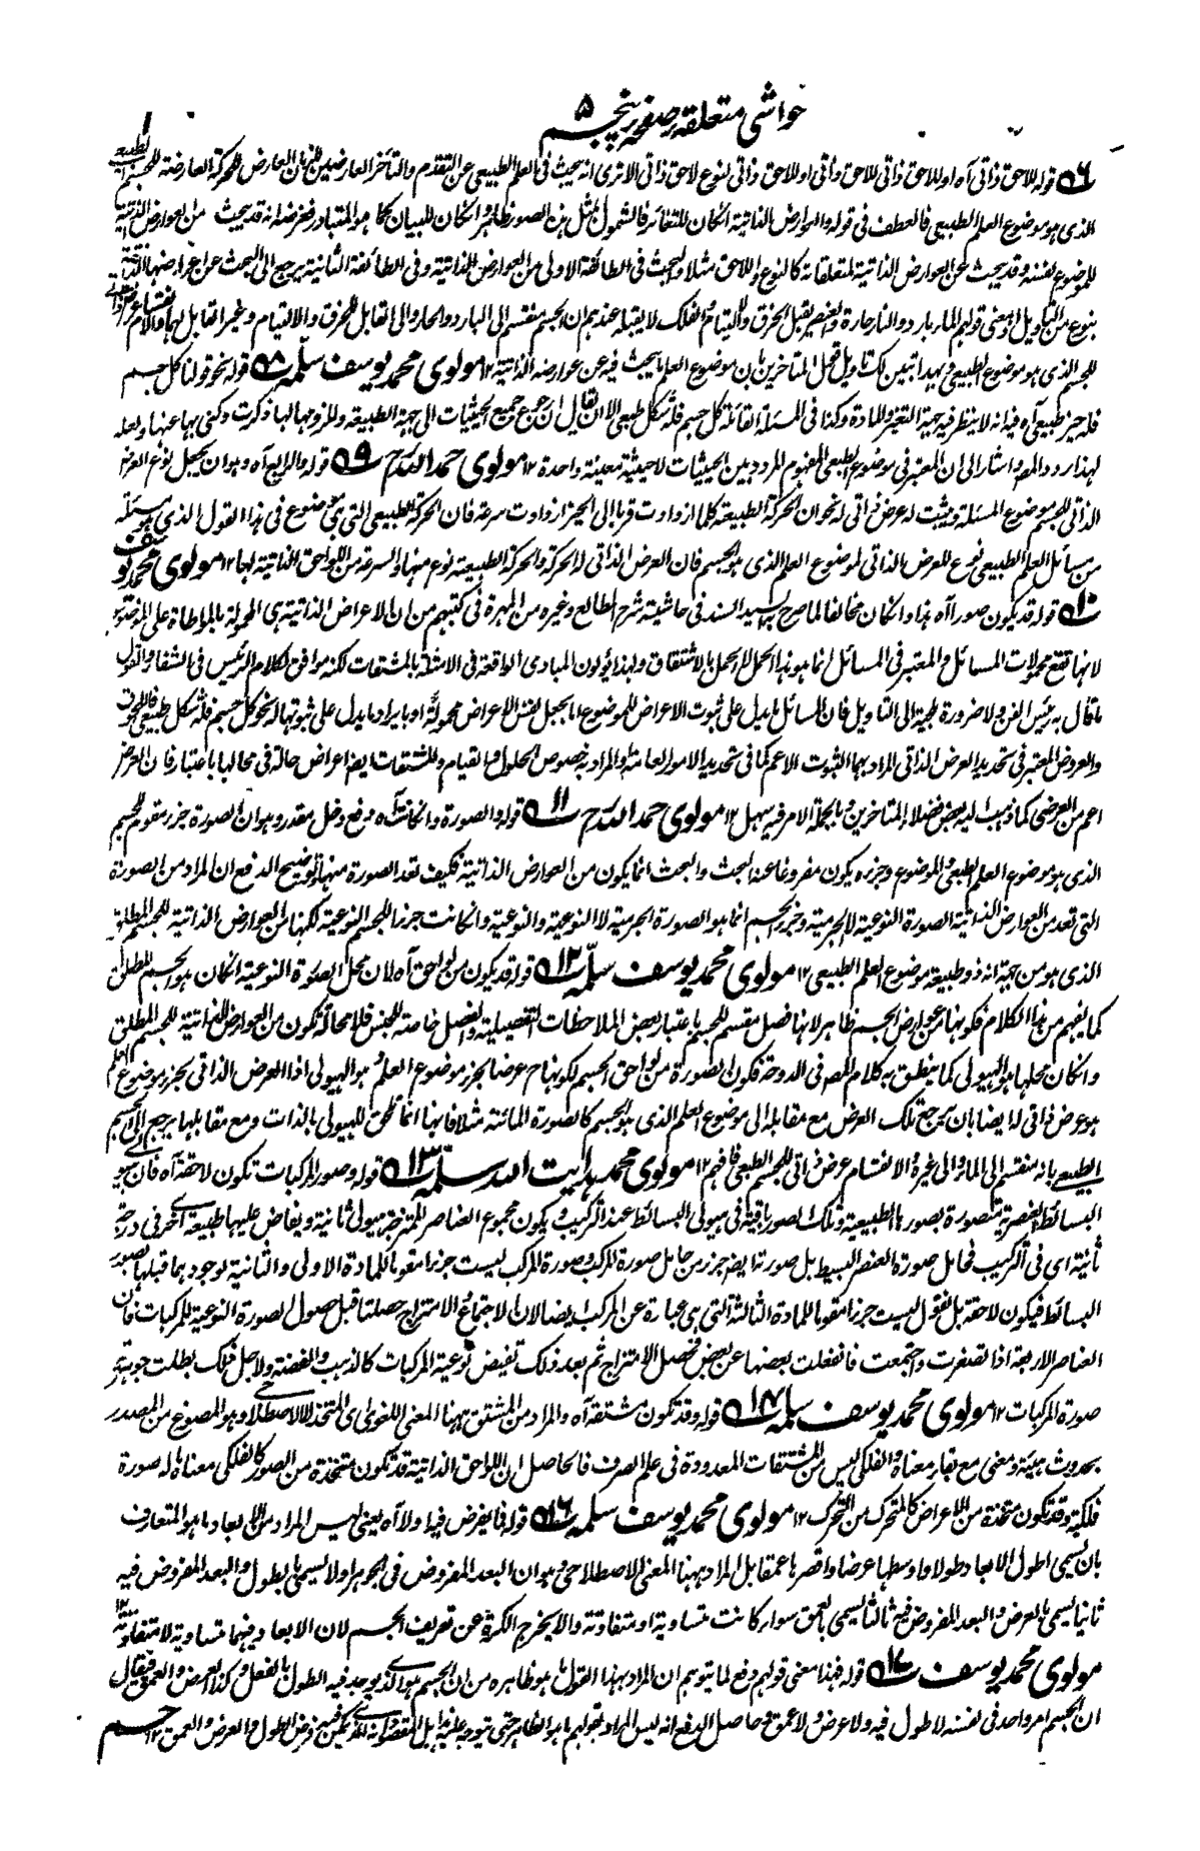 حواشی متعلقہ صفحہ پنجم ۵
قوله للاحق ذاتی آه او للاحق ذاتی للاحق ذاتی او للاحق ذاتی لنوع لاحق ذاتی الا تری انه یبحث فی العلم الطبیعی عن التقدم والتأخر العارضین للزمان العارض للحرکة العارضة للجسم الطبیعی
الذی هو موضوع العلم الطبیعی فالعطف فی قوله والعوارض الذاتیة ان کان للتغائر فالشمول لمثل هذه الصور ظاهر وان کان للبیان کما هو المتبادر فغرضه انه قد یبحث من العوارض الذاتیة
للموضوع نفسه وقد یبحث عن العوارض الذاتیة لمتعلقاته کالنوع واللاحق مثلا والبحث فی الطائفة الاولی من العوارض الذاتیة وفی الطائفة الثانیة یرجع الی البحث عن اعراضها الذاتیة
بنوع من التاویل اذ معنی قولهم الماء بارد والنار حارة والعنصر یقبل الخرق والالتیام والفلک لا یقبله عندهم ان الجسم منقسم الی البارد والحار والی القابل للخرق والالتیام وغیر القابل لهما
للجسم الذی هو موضوع الطبیعی وبهذا تبین لک تاویل قول المتاخرین بان موضوع العلم ما یبحث فیه عن عوارضه الذاتیة ۱۲ مولوی محمد یوسف سلمه ۸ قوله نحو قولنا کل جسم
فله حیز طبیعی آه فیه انه لا ینظر فیه جهة التغیر والمادة وکذا فی المسئلة القائلة کل جسم فله شکل طبیعی الا ان یقال ان مرجع جمیع الحیثیات الی جهة الطبیعة وللزومها لها ذکرت وکنی بها عنها ولعله
لهذا ردد المص واشار الی ان المعتبر فی موضوع الطبیعی المفهوم المردد بین الحیثیات لا حیثیة معینة واحدة ۱۲ مولوی حمد الله رح ۹ قوله والرابع آه وهو ان یجعل نوع العرض
الذاتی للجسم موضوع المسئلة ویثبت له عرض ذاتی له نحو ان الحرکة الطبیعیة کلما ازدادت قربا الی الحیز ازدادت سرعة فان الحرکة الطبیعی التی هی موضوع فی هذا القول الذی هو مسئله
من مسائل العلم الطبیعی نوع للعرض الذاتی لموضوع العلم الذی هو الجسم فان العرض الذاتی له الحرکة والحرکة الطبیعیة نوع منها والسرعة من اللواحق الذاتیة لها ۱۲ مولوی محمد یوسف
۱۰ قوله قد یکون صورا آه هذا وان کان مخالفا لما صرح به السید السند فی حاشیة شرح المطالع وغیره من المهرة فی کتبهم من ان الاعراض الذاتیة هی المحمولة بالمواطاة علی الموضوع
لانها تقع محمولات المسائل والمعتبر فی المسائل انما هو هذا الحمل لا الحمل بالاشتقاق ولهذا یؤولون المبادی الواقعة فی الامثلة بالمشتقات لکنه موافق لکلام الرئیس فی الشفاء والقول
ما قال به رئیس الفن ولا ضرورة ملجیة الی التاویل فان المسائل ما یدل علی ثبوت الاعراض للموضوع اما بجعل نفس الاعراض محمولة او بایراد ما یدل علی ثبوتها له نحو کل جسم فله شکل طبیعی فاللحوق
والعروض المعتبر فی تحدید العرض الذاتی المراد بهما الثبوت الاعم کما فی تحدید الامور العامة والمراد به خصوص الحلول والقیام والمشتقات ایضا اعراض حالة فی محالها باعتبار فان العرض
اعم من العرضی کما ذهب الیه بعض فضلاء المتاخرین وبالجملة الامر فیه سهل ۱۲ مولوی حمد الله رح ۱۱ قوله والصورة وان کانت آه دفع دخل مقدر وهو ان الصورة جزء مقوم للجسم
الذی هو موضوع العلم الطبیعی والموضوع وجزءه یکون مفروغا عنه البحث والبحث انما یکون من العوارض الذاتیة فکیف تعد الصورة منها توضیح الدفع ان المراد من الصورة
التی تعد من العوارض الذاتیة الصورة النوعیة لا الجرمیة وجزء الجسم انما هو الصورة الجرمیة لا النوعیة والنوعیة وان کانت جزءا للجسم النوعیة لکنها من العوارض الذاتیة للجسم المطلق
الذی هو من جهة انه ذو طبیعة موضوع العلم الطبیعی ۱۲ مولوی محمد یوسف سلمه ۱۲ قوله قد یکون من لواحق آه لان محل الصورة النوعیة ان کان هو الجسم المطلق
کما یفهم من هذا الکلام فکونها من عوارض الجسم ظاهر لانها فصل مقسم للجسم باعتبار بعض الملاحظات التفصیلیة والفصل خاصة للجنس فلا محالة تکون من العوارض الذاتیة للجسم المطلق
وان کان محلها هو الهیولی کما ینطق به کلام المص فی الدوحة فکون الصورة من لواحق الجسم لکونها ح عرضا لجزء موضوع العلم وهو الهیولی اذ العرض الذاتی لجزء موضوع العلم
هو عرض ذاتی له ایضا بان یرجع تلک العرض مع مقابله الی موضوع العلم الذی هو الجسم کالصورة المائیة مثلا فانها انما تلحق للهیولی بالذات ومع مقابلها یرجع الی الجسم
الطبیعی بانه منقسم الی الماء والی غیره والانقسام عرض ذاتی للجسم الطبیعی فافهم ۱۲ مولوی محمد هدایت الله سلمه ۱۳ قوله وصور المرکبات تکون لاحقة آه فان
البسائط العنصریة متصورة بصورها الطبیعیة وتلک الصور باقیة فی هیولی البسائط عند الترکیب ویکون مجموع العناصر الممتزجة هیولی ثانیة ویفاض علیها طبیعة اخری فی درجة
ثانیة ای فی الترکیب فحامل صورة العنصر البسیط بل صورته ایضا جزء من حامل صورة المرکب وصورة المرکب لیست جزءا مقوما للمادة الاولی والثانیة لوجودهما قبلها بصور
البسائط فیکون لاحقة بل نقول لیست جزءا مقوما للمادة الثالثة التی هی عبارة عن المرکب ایضا لان الاجتماع والامتزاج حصلتا قبل حصول الصورة النوعیة للمرکبات فان
العناصر الاربعة اذا تصغرت واجتمعت فانفعلت بعضها عن بعض فحصل الامتزاج ثم بعد ذلک تفیض نوعیة المرکبات کالذهب والفضة ولاجل ذلک بطلت جوهریة
صورة المرکبات ۱۲ مولوی محمد یوسف سلمه ۱۴ قوله وقد تکون مشتقة آه والمراد من المشتق ههنا المعنی اللغوی ای المتخذ لا الاصطلاحی وهو المصوغ من المصدر
بحدوث هیئة ومعنی مع بقاء معناه والفلکی لیس من المشتقات المعدودة فی علم الصرف فالحاصل ان اللواحق الذاتیة قد تکون متخذة من الصور کالفلکی معناه ما له صورة
فلکیة وقد تکون متخذة من الاعراض کالمتحرک من التحرک ۱۲ مولوی محمد یوسف سلمه ۱۶ قوله فما یفرض فیه اولا آه یعنی لیس المراد من الابعاد ما هو المتعارف
بان یسمی اطول الابعاد طولا واوسطها عرضا واقصرها عمقا بل المراد ههنا المعنی الاصطلاحی وهو ان البعد المفروض فی الجوهر اولا یسمی بالطول والبعد المفروض فیه
ثانیا یسمی بالعرض والبعد المفروض فیه ثالثا یسمی بالعمق سواء کانت متساویة او متفاوتة والا یخرج الکرة عن تعریف الجسم لان الابعاد فیها متساویة لا متفاوتة ۱۲
مولوی محمد یوسف ۱۷ قوله فهذا معنی قولهم دفع لما یتوهم ان المراد بهذا القول ما هو ظاهره من ان الجسم هو الذی یوجد فیه الطول بالفعل وکذا العرض والعمق فیقال
ان الجسم امر واحد فی نفسه لا طول فیه ولا عرض ولا عمق وحاصل الدفع انه لیس المراد بقولهم ما هو الظاهر حتی یتوجه علیه ما یقال بل المقصود انه الذی یمکن فیه فرض الطول والعرض والعمق ۱۲